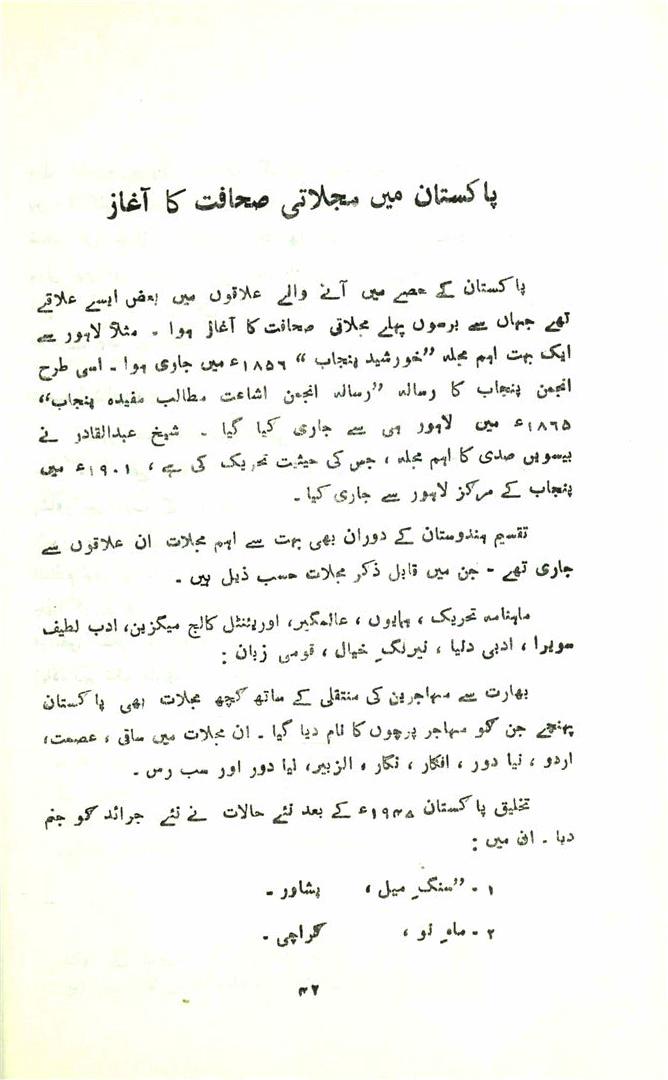 پاکستان میں مجلاتی صحافت کا آغاز
پاکستان کے حصے میں آنے والے علاقوں میں بعض ایسے علاقے
تھے جہاں سے برسوں پہلے مجلاتی صحافت کا آغاز ہوا ۔ مثلاً لاہور سے
ایک بہت اہم مجلہ ”خورشید پنجاب“ ۱۸۵۶ء میں جاری ہوا ۔ اسی طرح
انجمن پنجاب کا رسالہ ”رسالہ انجمن اشاعت مطالب مفیدہ پنجاب“
۱۸۶۵ء میں لاہور ہی سے جاری کیا گیا ۔ شیخ عبدالقادر نے
بیسویں صدی کا اہم مجلہ ، جس کی حیثیت تحریک کی ہے ، ۱۹۰۱ء میں
پنجاب کے مرکز لاہور سے جاری کیا ۔
تقسیم ہندوستان کے دوران بھی بہت سے اہم مجلات ان علاقوں سے
جاری تھے - جن میں قابل ذکر مجلات حسب ذیل ہیں ۔
ماہنامہ تحریک ، ہمایوں ، عالمگیر، اوریئنٹل کالج میگزین، ادب لطیف
سویرا ، ادبی دنیا ، نیرنگِ خیال ، قومی زبان :
بھارت سے مہاجرین کی منتقلی کے ساتھ کچھ مجلات بھی پاکستان
پہنچے جن کو مہاجر پرچوں کا نام دیا گیا ۔ ان مجلات میں ساقی ، عصمت،
اردو ، نیا دور ، افکار ، نگار ، الزبیر، نیا دور اور سب رس ۔
تخلیق پاکستان ۱۹۴۸ء کے بعد نئے حالات نے نئے جرائد کو جنم
دیا ۔ ان میں :
۱ - ”سنگِ میل ، پشاور -
۲ - ماہِ نو ، کراچی ۔
۴۲